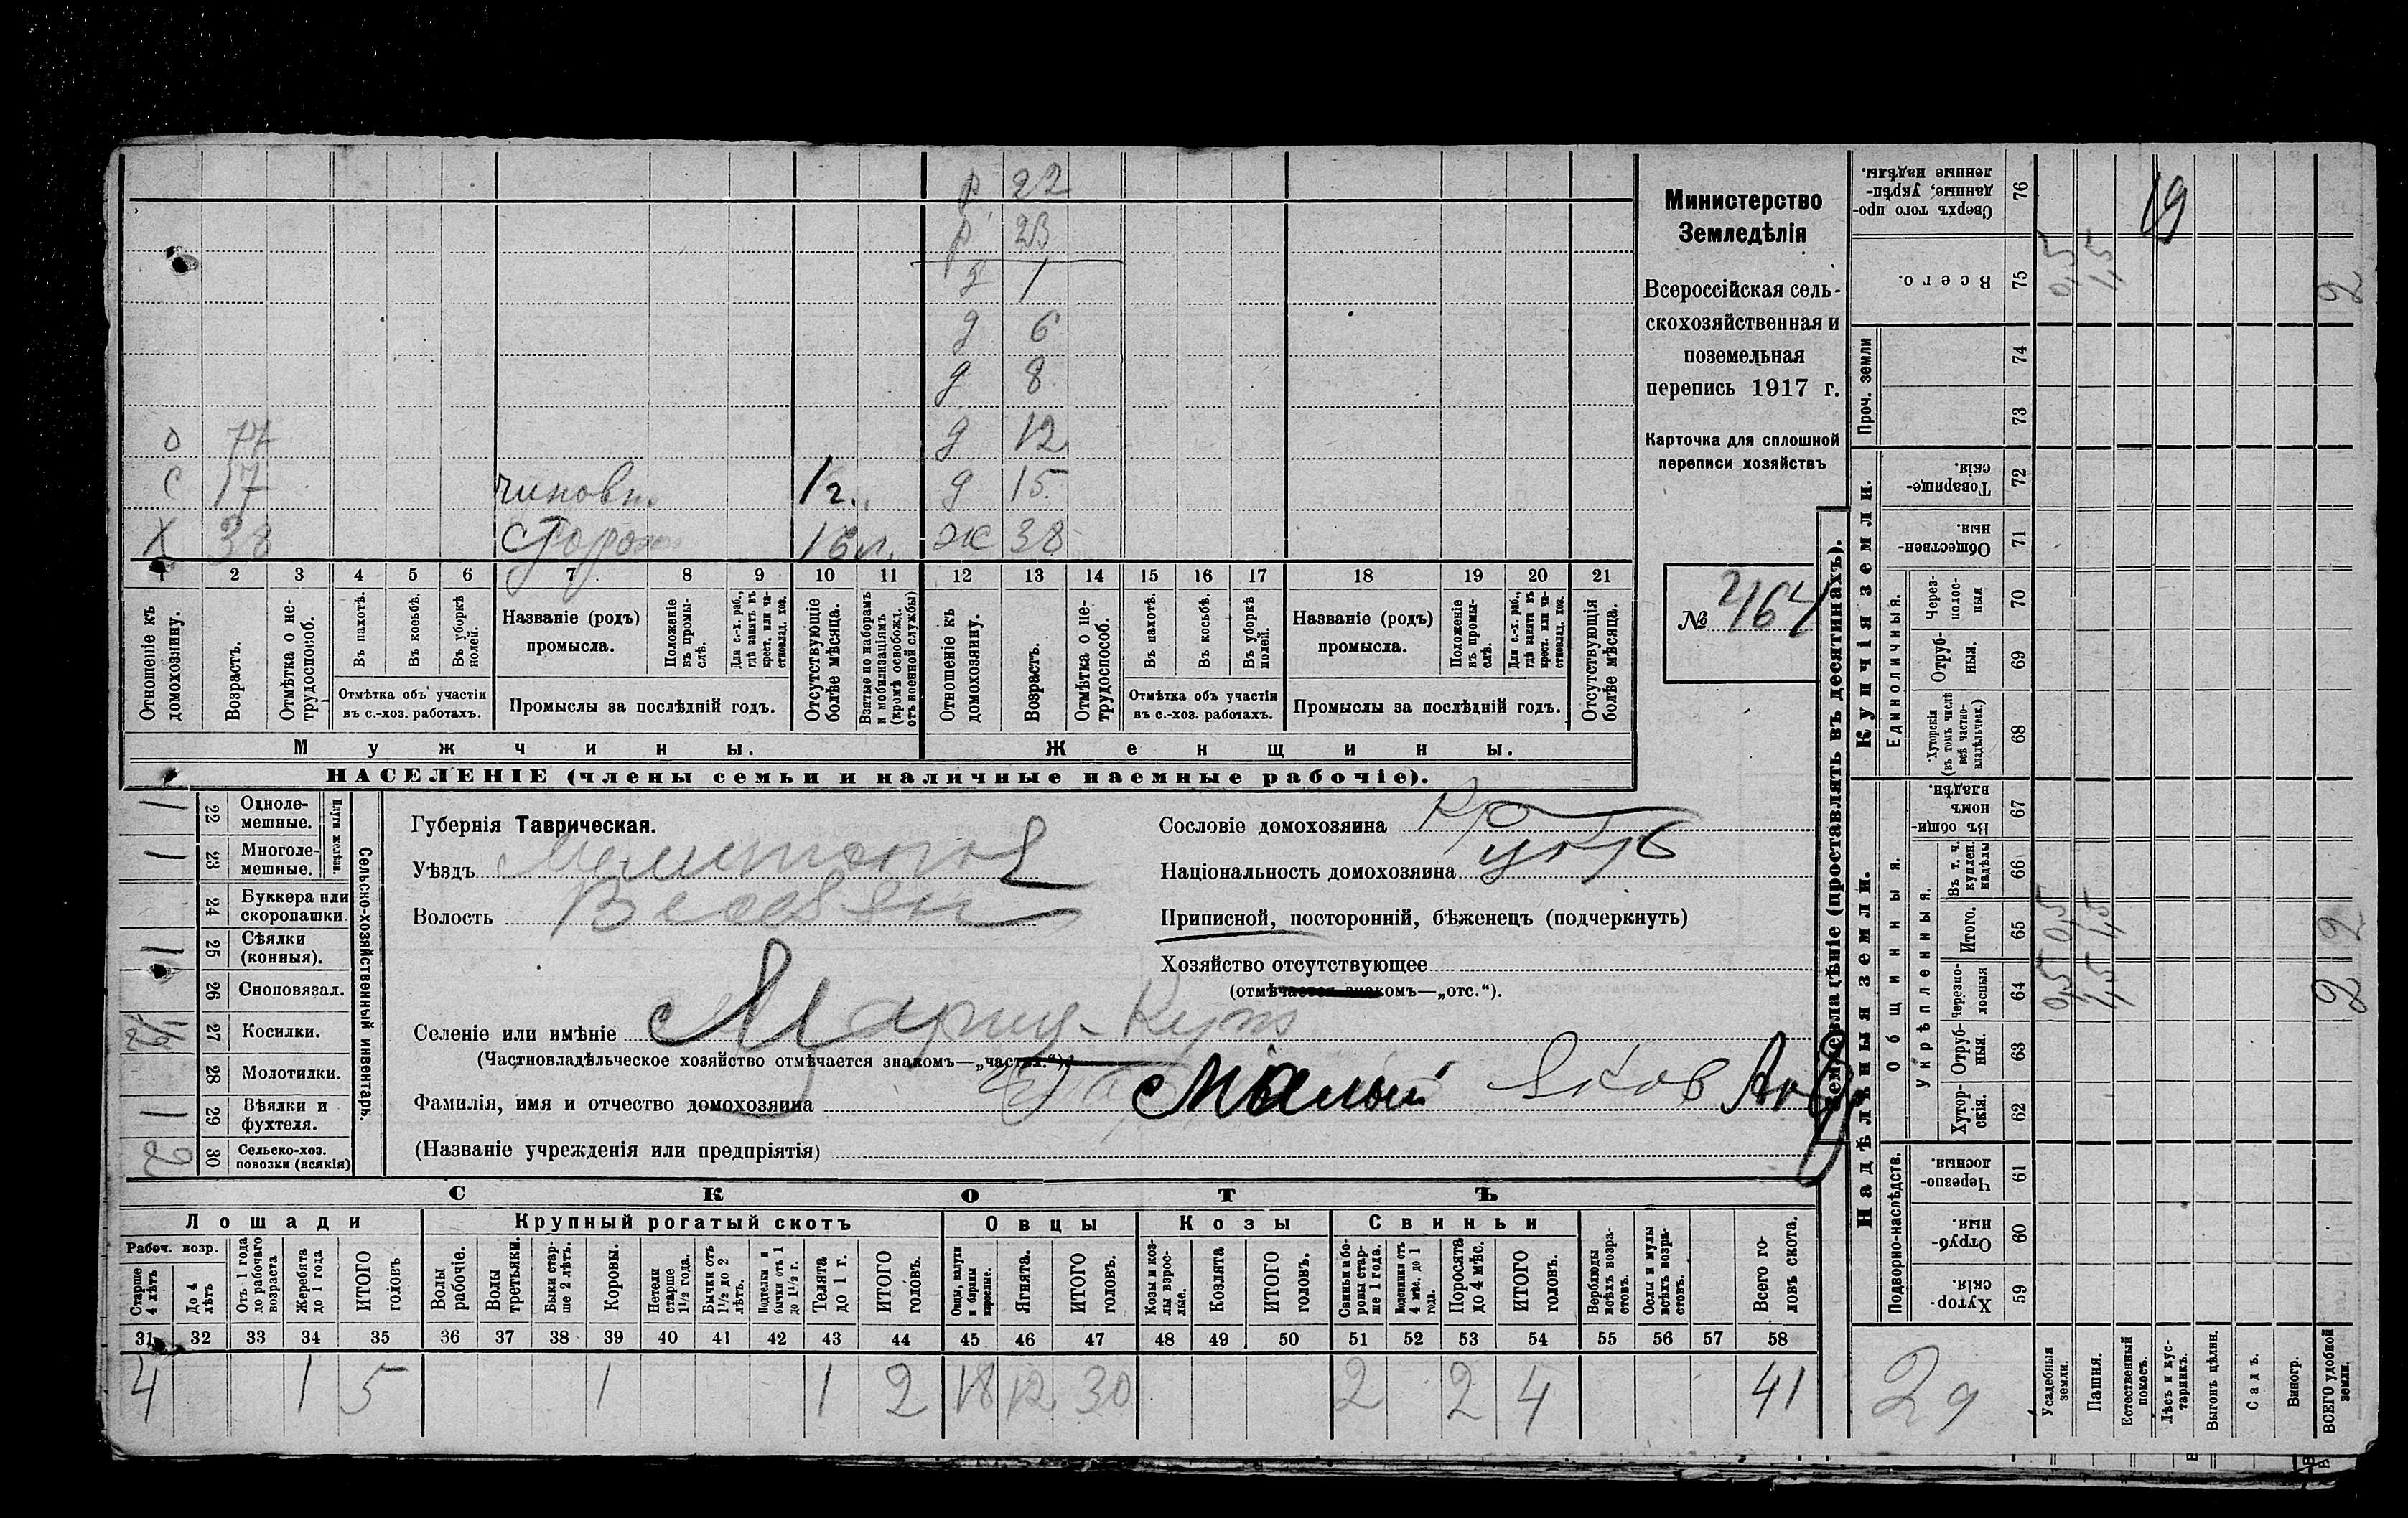 р 22
р 23
д 1
д 6
д 8
о 77 д 12
с 17 чиновн. 1 г. д 15
х 38 сторож 16 л. ж 38
1 2 3 4 5 6 7 8 9 10 11 12 13 14 15 16 17 18 19 20 21
Отношеніе къ домохозяину.
Возрастъ.
Отмѣтка о не-
трудоспособ.
Въ пахотѣ.
Въ косьбѣ.
Въ уборкѣ
полей.
Отмѣтка объ участіи
въ с.-хоз. работахъ.
Названіе (родъ)
промысла.
Положеніе
въ промы-
слѣ.
Для с.-х. раб.,
гдѣ занятъ въ
крест. или ча-
стновлад. хоз.
Промыслы за послѣдній годъ.
Отсутствующіе
болѣе мѣсяца.
Взятые по наборамъ
и мобилизаціямъ
(кромѣ освобожд.
отъ военной службы)
Отношеніе къ
домохозяину.
Возрастъ.
Отмѣтка о не-
трудоспособ.
Въ пахотѣ.
Въ косьбѣ.
Въ уборкѣ
полей.
Отмѣтка объ участіи
въ с.-хоз. работахъ.
Названіе (родъ)
промысла.
Положеніе
въ промы-
слѣ.
Для с.-х. раб.,
гдѣ занята въ
крест. или ча-
стновлад. хоз.
Промыслы за послѣдній годъ.
Отсутствующія
болѣе мѣсяца.
Мужчины. Женщины.
НАСЕЛЕНІЕ (члены семьи и наличные наемные рабочіе).
Министерство
Земледѣлія
Всероссійская сель-
скохозяйственная и
поземельная
перепись 1917 г.
Карточка для сплошной
переписи хозяйствъ
№ 2164
Сельско-хозяйственный инвентарь.
Плуги желѣзн.
1 22 Одноле-
мешные.
1 23 Многоле-
мешные.
24 Буккера или
скоропашки.
1 25 Сѣялки
(конныя).
26 Сноповязал.
27 Косилки.
28 Молотилки.
1 29 Вѣялки и
фухтеля.
2 30 Сельско-хоз.
повозки (всякія)
Губернія Таврическая.
Уѣздъ Мелитопол
Волость Веселян
Селеніе или имѣніе
(Частновладѣльческое хозяйство отмѣчается знакомъ—„частвл.“).
Фамилія, имя и отчество домохозяина Малый Яков Анд
(Названіе учрежденія или предпріятія)
Сословіе домохозяина Кр
Національность домохозяина
Приписной, посторонній, бѣженецъ (подчеркнуть)
Хозяйство отсутствующее
(отмѣчается знакомъ—„отс.“).
СКОТЪ
Лошади Крупный рогатый скотъ Овцы Козы Свиньи
Рабоч. возр.
Старше
4 лѣтъ
До 4
лѣтъ
Отъ 1 года
до рабочаго
возраста
Жеребята
до 1 года
ИТОГО
головъ
Волы
рабочіе.
Волы
третьяки.
Быки стар-
ше 2 лѣтъ.
Коровы.
Нетели
старше
1½ года.
Бычки отъ
1½ до 2
лѣтъ.
Подтелки и
бычки отъ 1
до 1½ г.
Телята
до 1 г.
ИТОГО
головъ.
Овцы, валухи
и бараны
взрослые.
Ягнята.
ИТОГО
головъ.
Козы и коз-
лы взрос-
лые.
Козлята
ИТОГО
головъ.
Свиньи и бо-
ровы стар-
ше 1 года.
Подсвинки отъ
4 мѣс. до 1
года.
Поросята
до 4 мѣс.
ИТОГО
головъ.
Верблюды
всѣхъ возра-
стовъ.
Ослы и мулы
всѣхъ возра-
стовъ.
Всего го-
ловъ скота.
31 32 33 34 35 36 37 38 39 40 41 42 43 44 45 46 47 48 49 50 51 52 53 54 55 56 57 58
4 1 5 1 1 2 18 12 30 2 2 4 41
Землевладѣніе (проставлять въ десятинахъ).
Надѣльныя земли. Купчія земли.
Подворно-наслѣдств.
Общинныя.
Укрѣпленныя.
Единоличныя.
Проч. земли
59 Хутор-
скія.
60 Отруб-
ныя.
61 Черезпо-
лосныя.
62 Хутор-
скія.
63 Отруб-
ныя.
64 Черезпо-
лосныя
65 Итого.
66 Въ т. ч.
куплен.
надѣлы
67 Въ общи-
номъ
владѣн.
68 Хуторскія
(въ томъ числѣ
всѣ частно-
владѣльческ.)
69 Отруб-
ныя.
70 Через-
полос-
ныя
71 Обществен-
ныя.
72 Товарище-
скія.
73
74
75 Всего.
76 Сверхъ того про-
данные, укрѣп-
ленные надѣлы.
Усадебныя
земли. 0,5 0,5 0,5
Пашня. 1,5 1,5 1,5
Естественный
покосъ.
Лѣсъ и кус-
тарникъ.
Выгонъ цѣлин.
Садъ.
Виногр.
ВСЕГО удобной
земли. 2 2 2
19
29